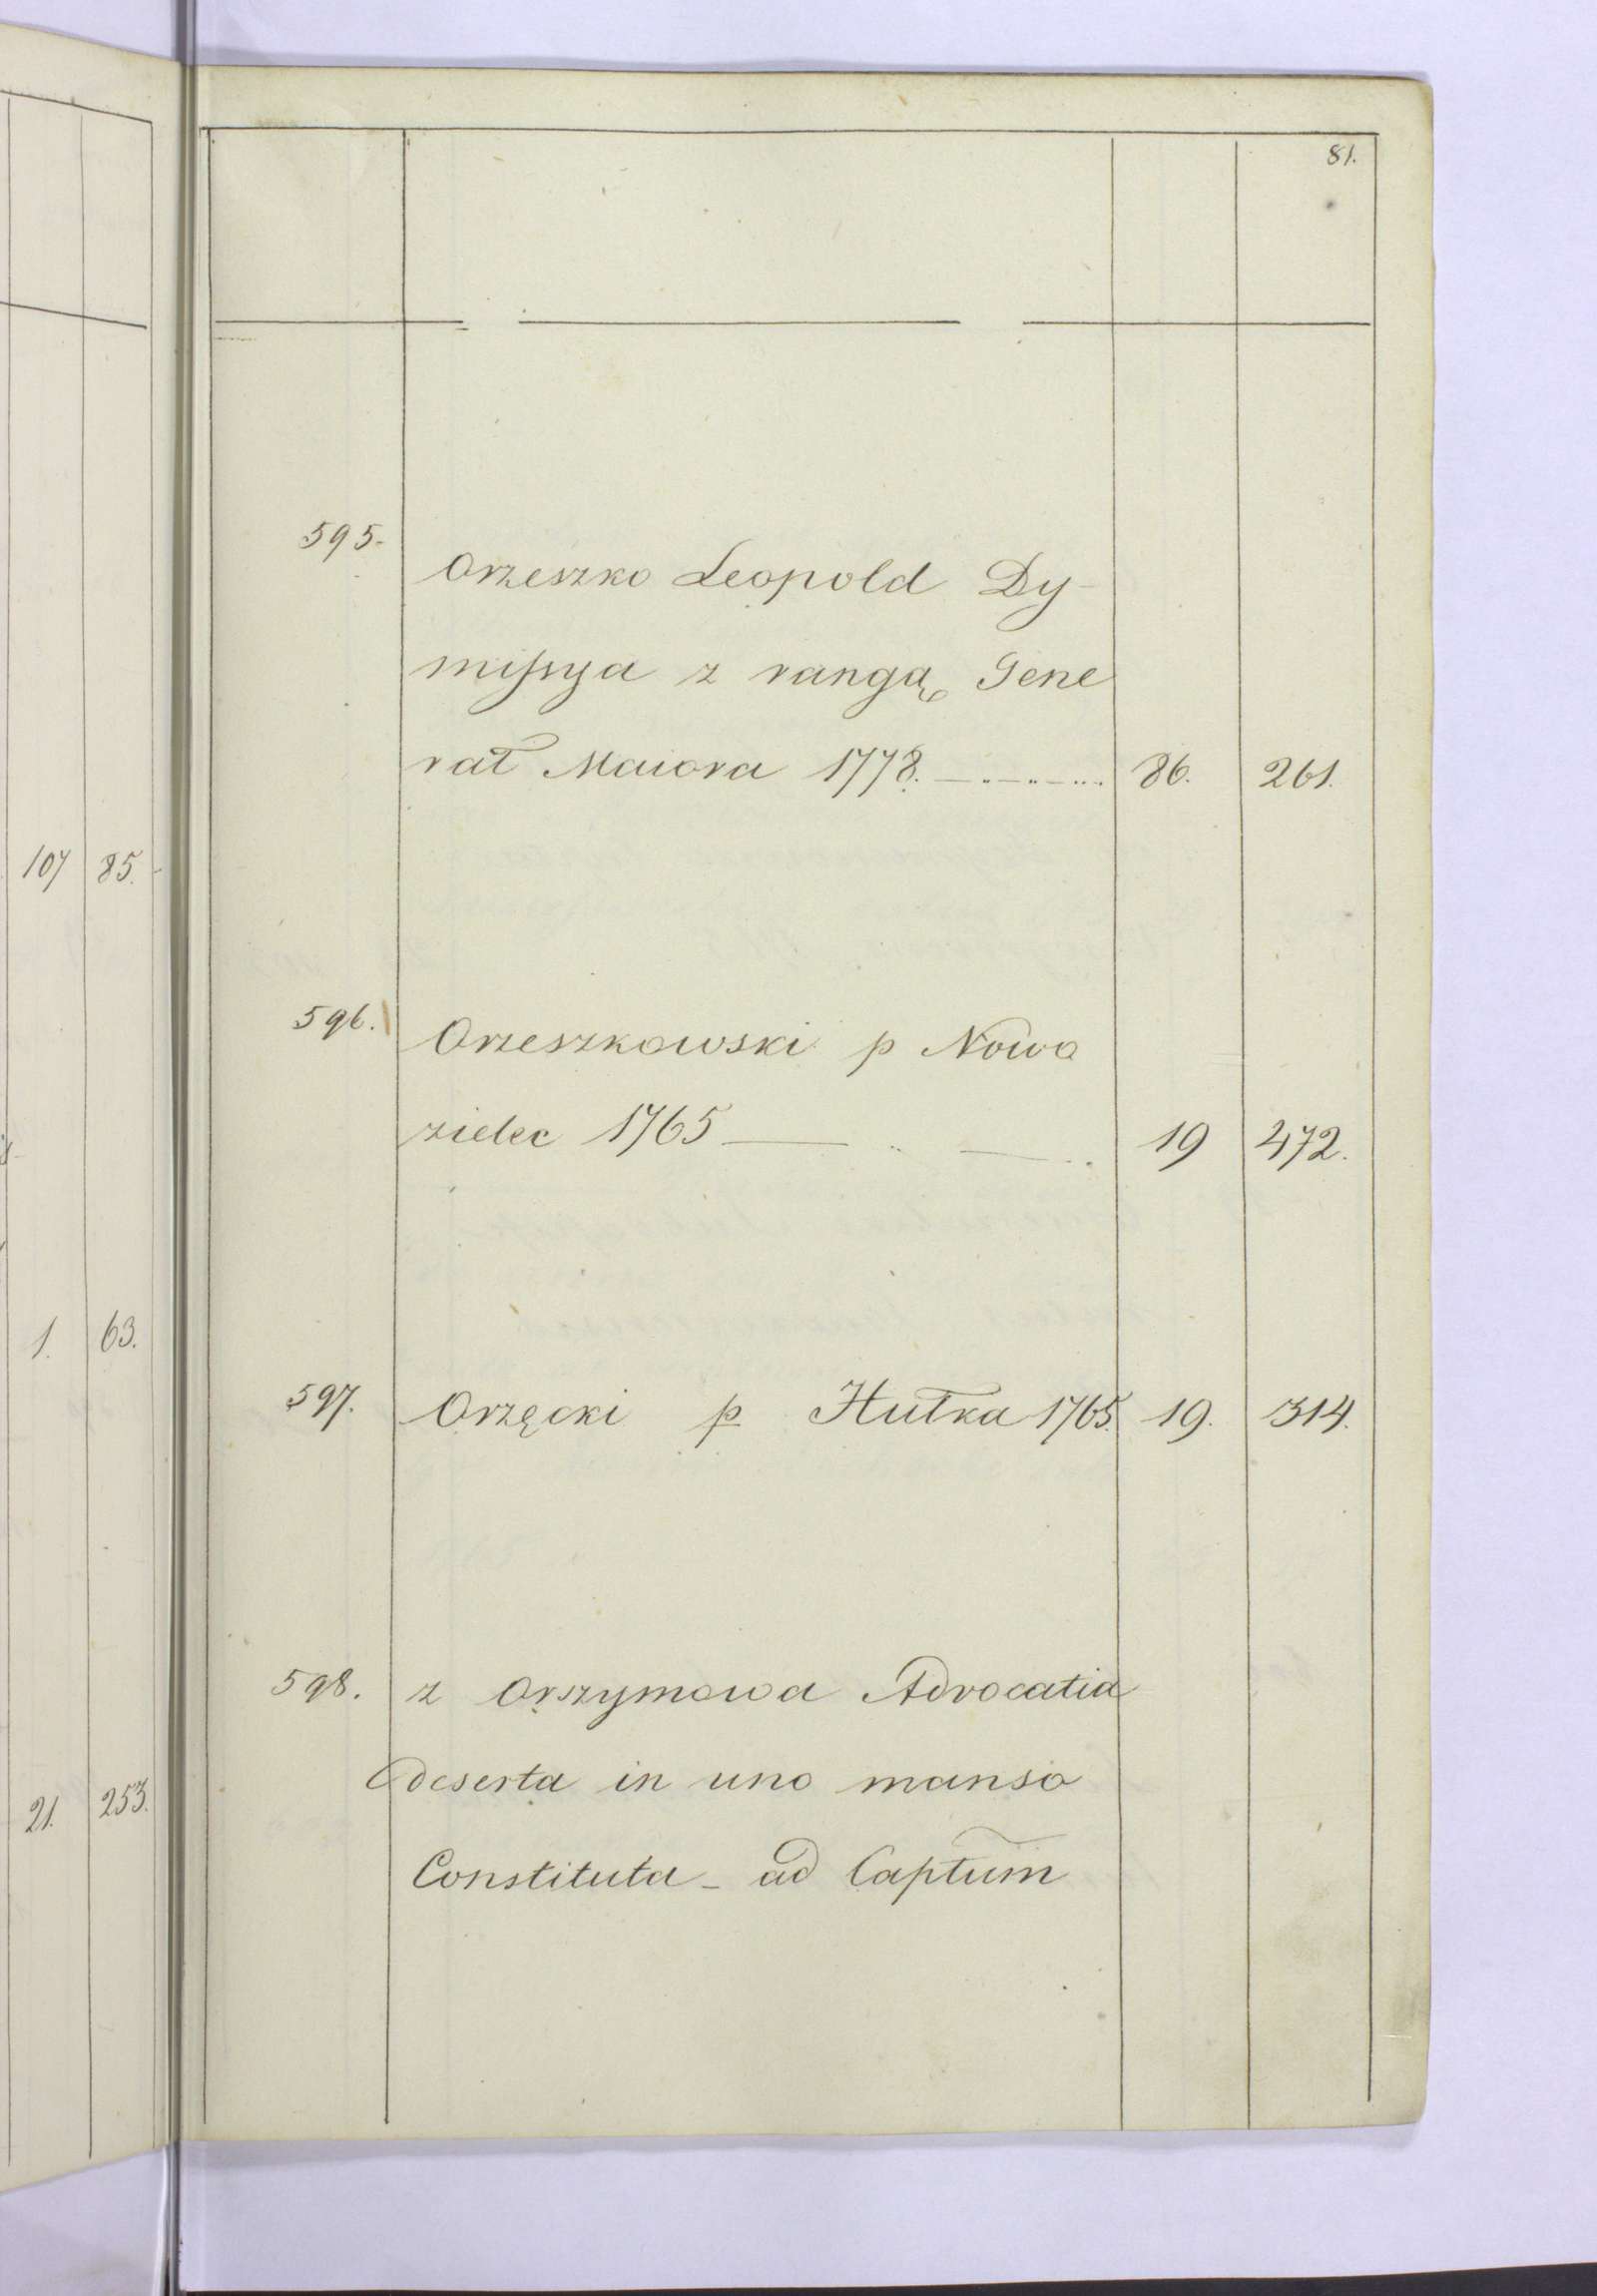 81.
595. Orzeszko Leopold Dy-
missya z rangą Gene
rał Maiora 1778. 86. 261.
107 85.
596. Orzeszkowski p Nowo
zielec 1765 19 472.
1. 63.
597. Orzęcki p Hułka 1765. 19. 314.
598. z Orszymowa Advocatia
21. 253.
deserta in uno manso
Constituta - ad Captum